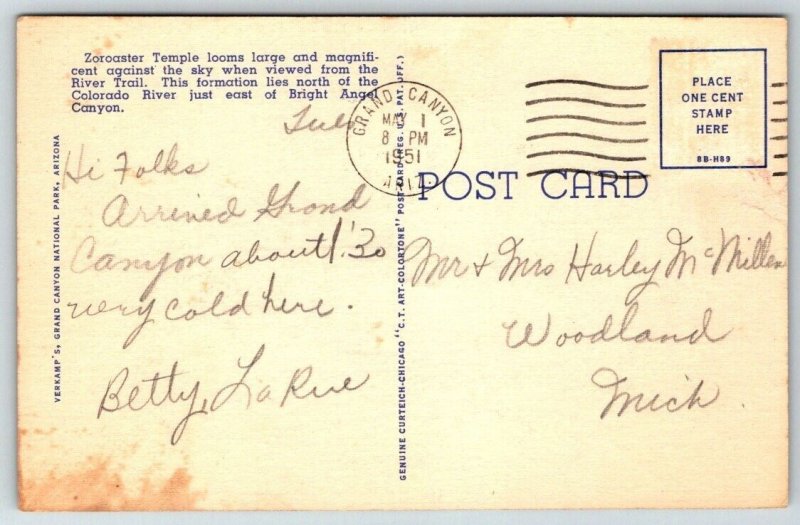 Zoroaster Temple looms large and magnifi-
cent against the sky when viewed from the
River Trail. This formation lies north of the
Colorado River just east of Bright Angel
Canyon.
Hi Folks
Arrived Grand
Canyon about 1:30
very cold here.
Betty, LaRue
VERKAMP'S, GRAND CANYON NATIONAL PARK, ARIZONA
GENUINE CURTEICH-CHICAGO "C.T. ART-COLORTONE" POST CARD (REG. U.S. PAT. OFF.)
GRAND CANYON
MAY 1
8 PM
1951
ARIZ.
PLACE
ONE CENT
STAMP
HERE
8B-H89
POST CARD
Mr & Mrs Harley McMillen
Woodland
Mich.